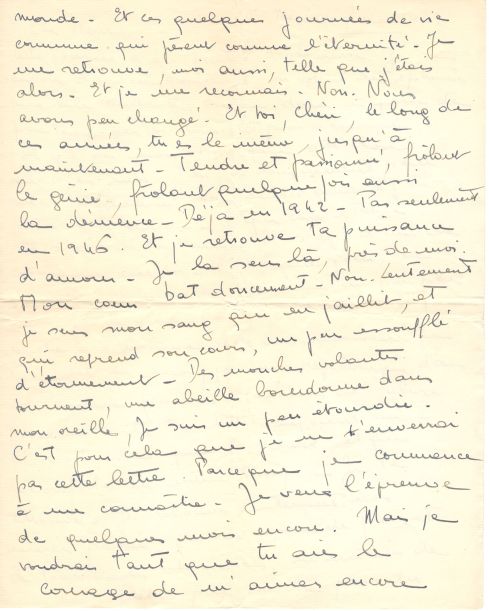 monde - Et ces quelques journées de vie
commune qui pèsent comme l'éternité - Je
me retrouve, moi aussi, telle que j'étais
alors - Et je me reconnais - Non. Nous
avons peu changé. Et toi, chéri, le long de
ces années, tu es le même, jusqu'à
maintenant - Tendre et passionné, frôlant
le génie, frôlant quelquefois aussi
la démence - Déjà en 1942 - Pas seulement
en 1946. Et je retrouve ta puissance
d'amour - Je la sens là, près de moi.
Mon cœur bat doucement - Non. Lentement
je sens mon sang qui en jaillit, et
qui reprend son cours, un peu essoufflé
d'étonnement - Des mouches volantes
tournent, une abeille bourdonne dans
mon oreille, Je suis un peu étourdie.
C'est pour cela que je ne t'enverrai
pas cette lettre. Parce que je commence
à me connaître - Je veux l'épreuve
de quelques mois encore. Mais je
voudrais tant que tu aies le
courage de m'aimer encore